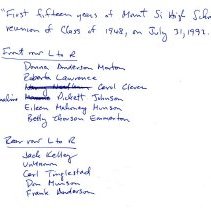 "First fifteen years of Mount Si High School
reunion of Class of 1948, on July 31, 1992.
Front row L to R
Donna Anderson Morton
Roberta Lawrence
Carol Clever
Pickett Johnson
Eileen Mahoney Munson
Betty Thorsen Emmerton
Rear row L to R
Jack Kelley
Unknown
Carl Tinglestad
Don Munson
Frank Anderson